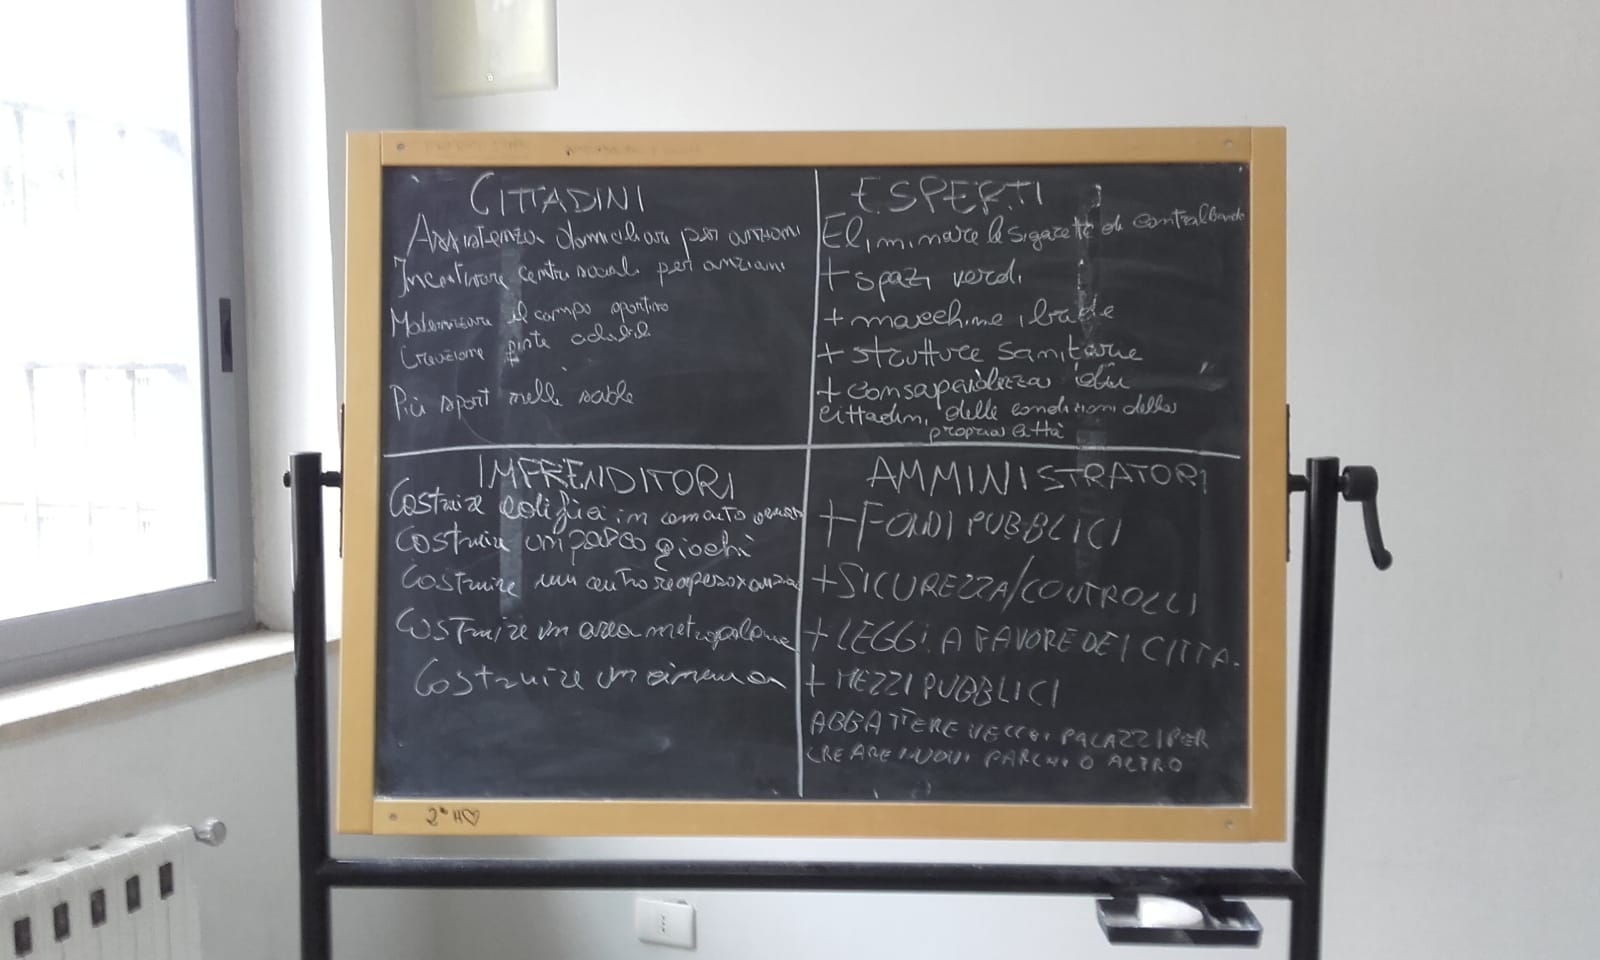 CITTADINI
Assistenza domiciliare per anziani
Incentivare centri sociali per anziani
Modernizzare il campo sportivo
Creazione piste ciclabili
Più sport nelle scuole
ESPERTI
Eliminare le sigarette di contrabbando
+ spazi verdi
+ macchine ibride
+ strutture sanitarie
+ consapevolezza dei
cittadini delle condizioni della
propria città
IMPRENDITORI
Costruire edifici in cemento
Costruire un parco giochi
Costruire un centro recupero x anziani
Costruire un area metropolitana
Costruire un cinema
AMMINISTRATORI
+ FONDI PUBBLICI
+ SICUREZZA/CONTROLLI
+ LEGGI A FAVORE DEI CITTA.
+ MEZZI PUBBLICI
ABBATTERE VECCHI PALAZZI PER
CREARE NUOVI PARCHI O ALTRO
2ª H♡